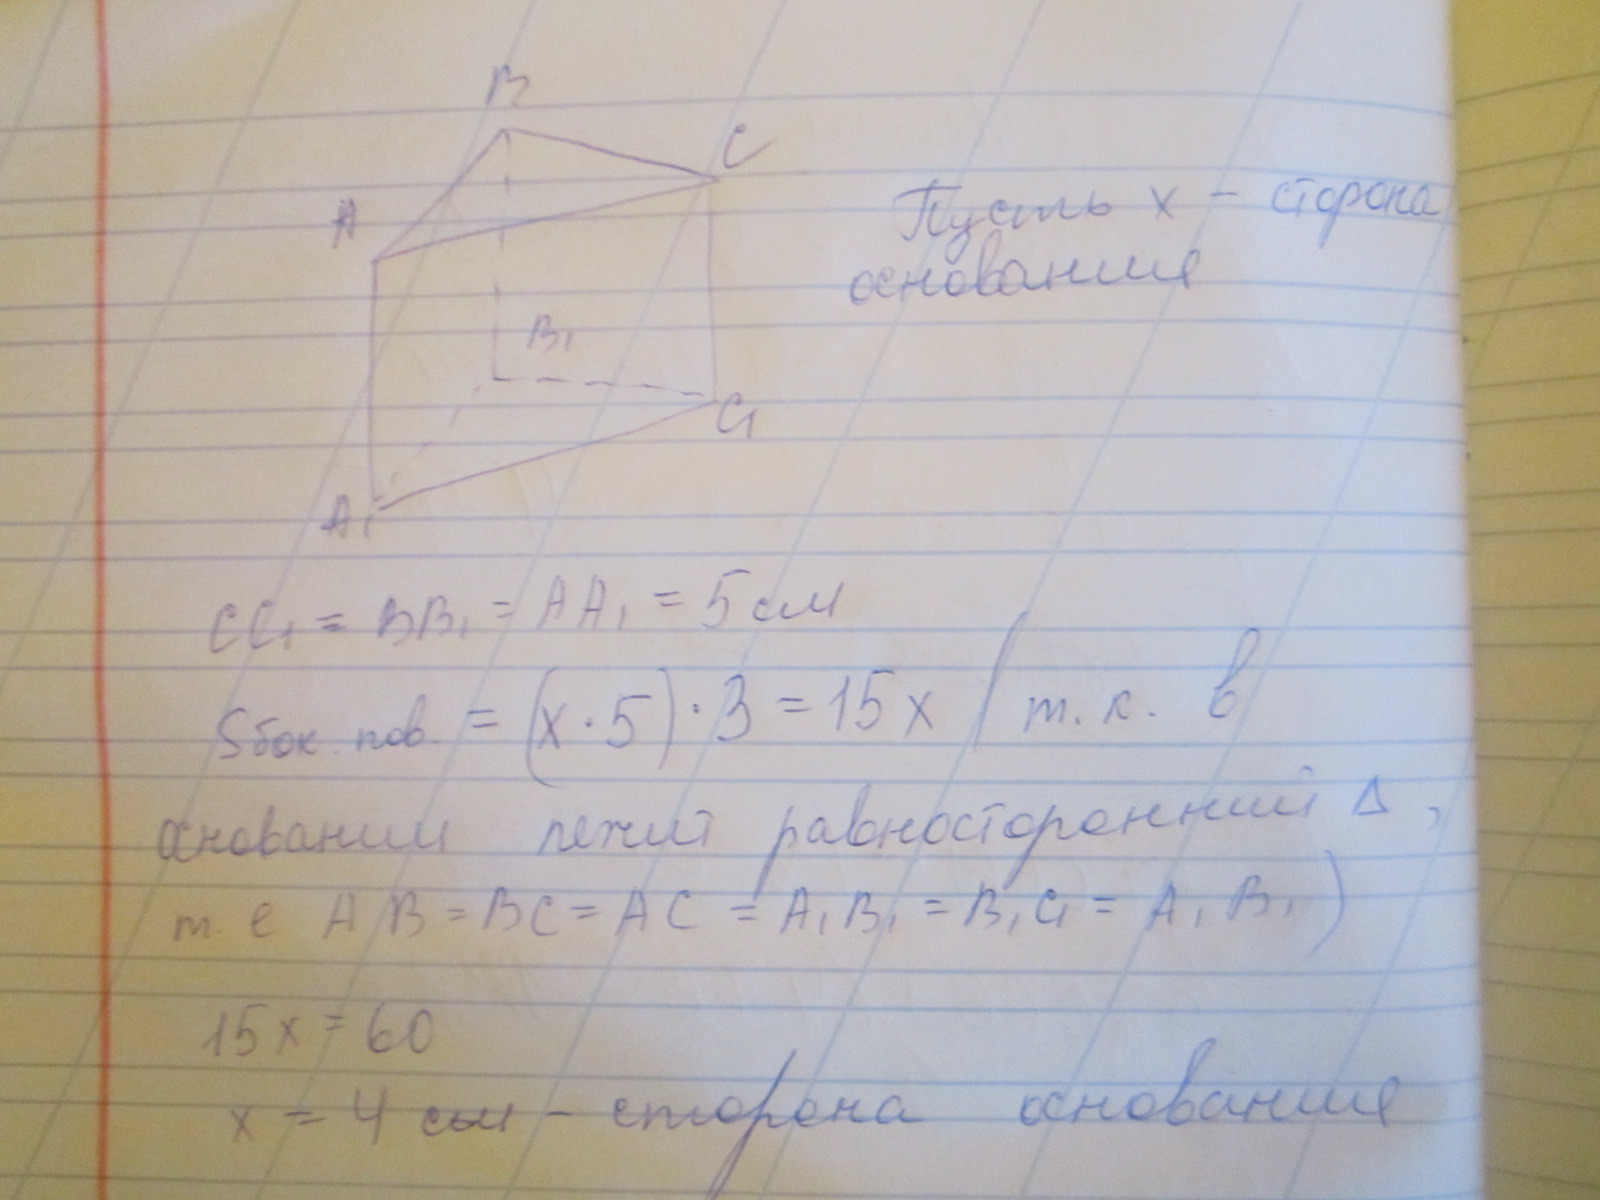 B
C
A
Пусть x - сторона
основания
B₁
C₁
A₁
CC₁ = BB₁ = AA₁ = 5 см
Sбок. пов. = (x · 5) · 3 = 15x (т. к. в
основании лежит равносторонний Δ,
т. е AB = BC = AC = A₁B₁ = B₁C₁ = A₁B₁)
15x = 60
x = 4 см - сторона основания